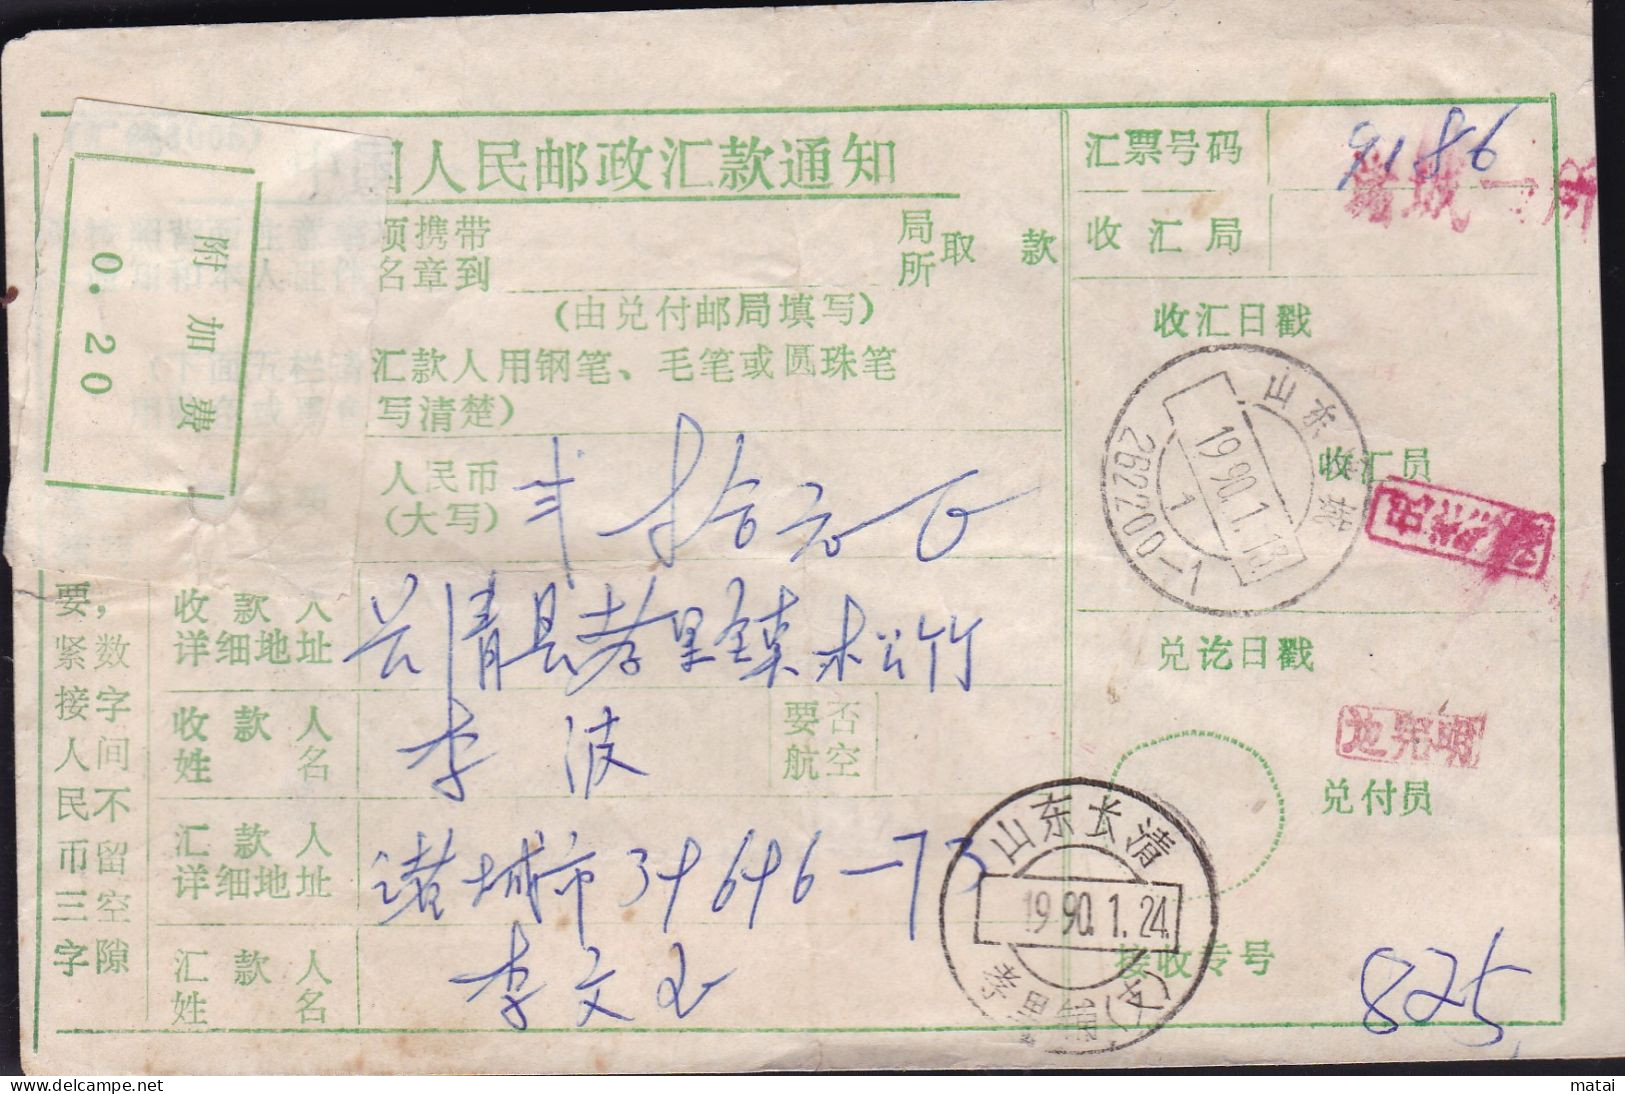 国人民邮政汇款通知
附加费
0.20
须携带
名章到
局所取款
(由兑付邮局填写)
汇款人用钢笔、毛笔或圆珠笔
写清楚)
人民币
(大写)
贰拾元正
收款人
详细地址
长清县孝里镇松竹
收款人
姓名
李波
要否
航空
汇款人
详细地址
诸城市34646-73
汇款人
姓名
李文
要,
紧接人民币三字
数字间不留空隙
汇票号码
9186
收汇局
诸城一所
收汇日戳
山东诸城
1990.1.13
1
262200-1
收汇员
兑讫日戳
兑付员
山东长清
1990.1.24.
孝里铺(支)
接收专号
825
matai